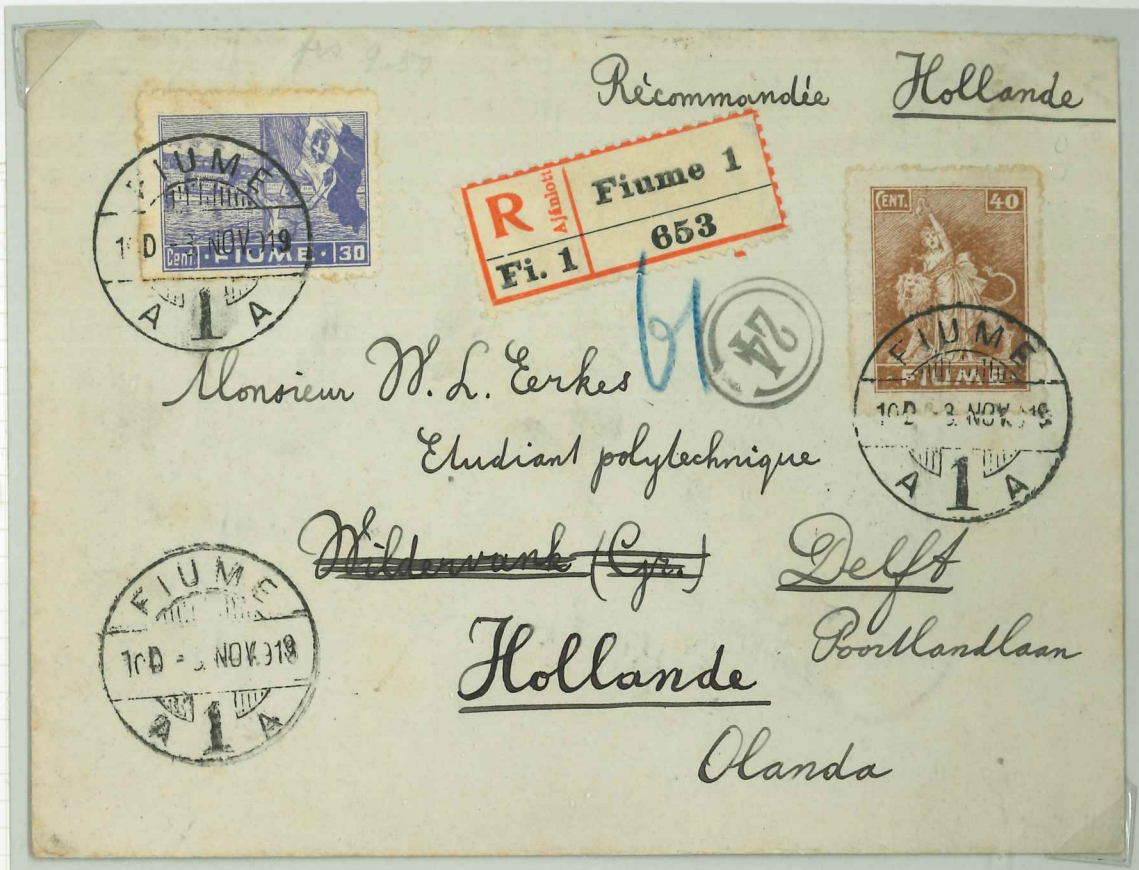 frs 9.50
Récommandée Hollande
Cent. FIUME 30
FIUME
10D -3. NOV. 919
A 1 A
R Ajánlott Fiume 1
Fi. 1 653
61
24
CENT. 40
FIUME
FIUME
10D -3. NOV. 919
A 1 A
Monsieur W. L. Eerkes
Etudiant polytechnique
Wildervank (Gr.) Delft
Poortlandlaan
Hollande
Olanda
FIUME
10D -3. NOV. 919
A 1 A